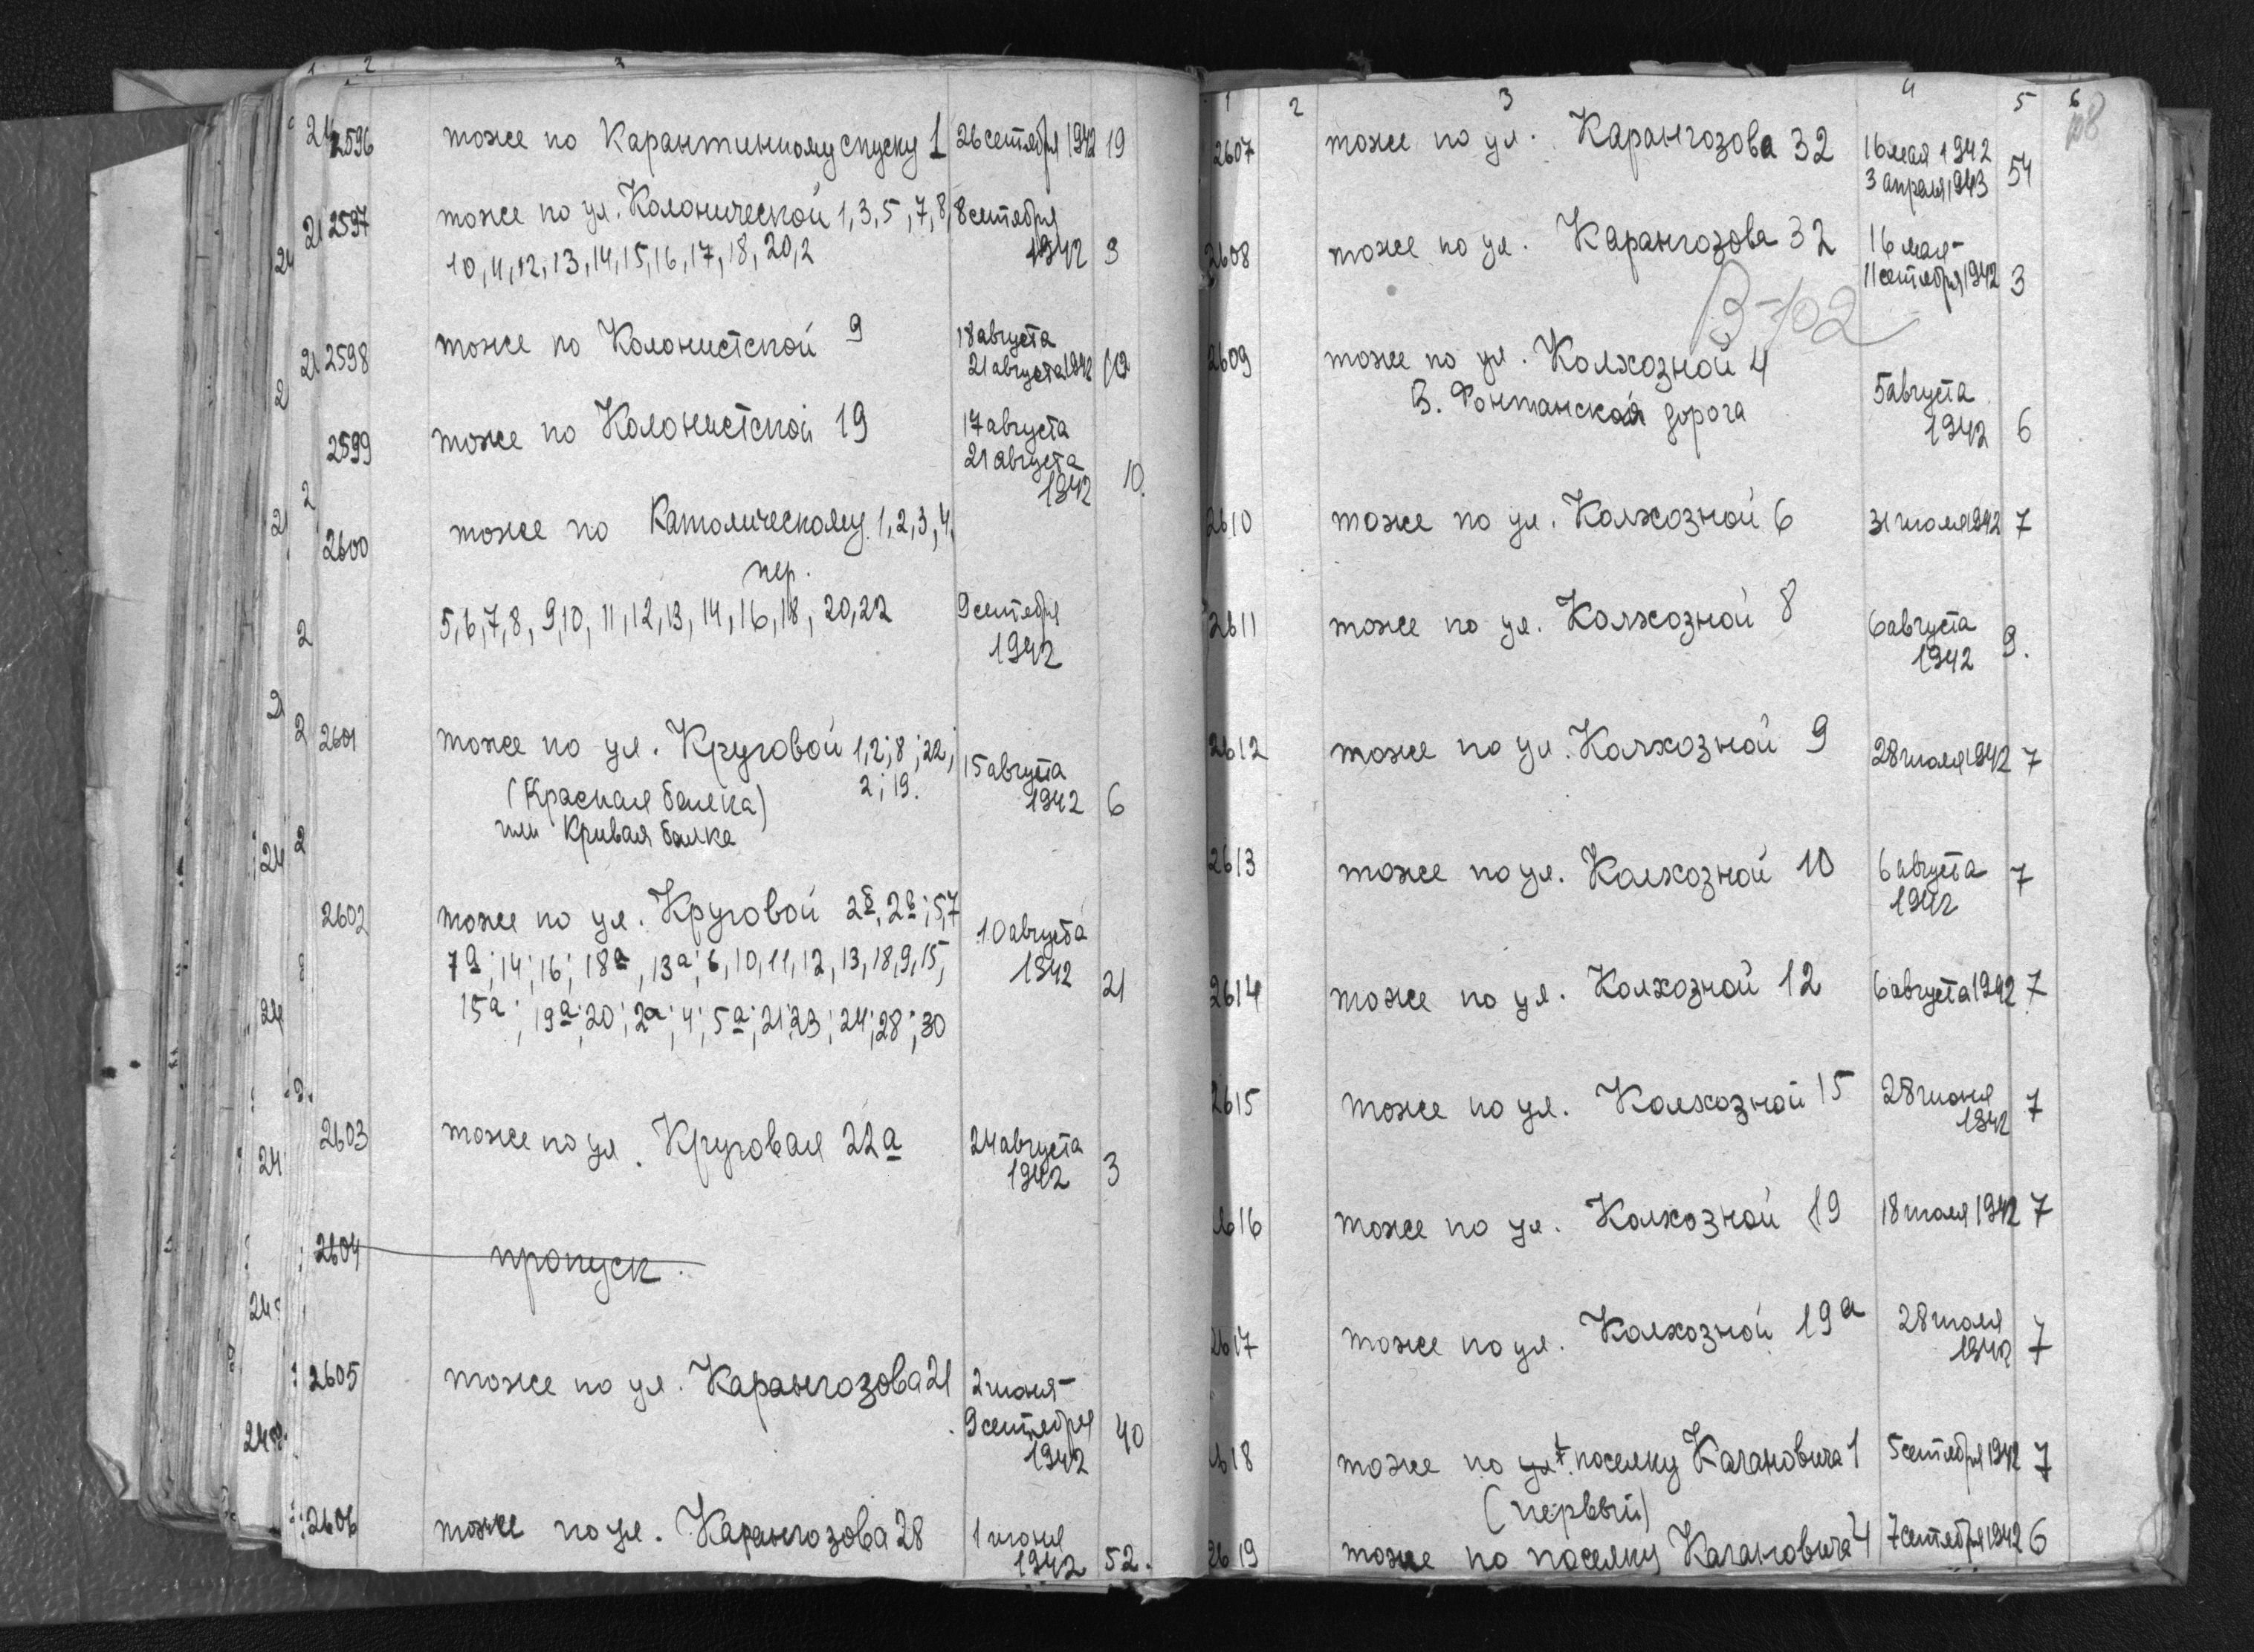 1 2 3
2596 тоже по Карантинному спуску 1 26 сентября 1942 19
2597 тоже по ул. Колонической 1, 3, 5, 7, 8, 8 сентября
10, 11, 12, 13, 14, 15, 16, 17, 18, 20, 2 1942 9
2598 тоже по Колонистской 9 18 августа
21 августа 1942
2599 тоже по Колонистской 19 17 августа
21 августа
1942 10.
2600 тоже по Католическому 1, 2, 3, 4,
пер.
5, 6, 7, 8, 9, 10, 11, 12, 13, 14, 16, 18, 20, 22 9 сентября
1942
2601 тоже по ул. Круговой 1, 2; 8; 22;
2; 19. 15 августа
(Красная балка) 1942 6
или Кривая балка
2602 тоже по ул. Круговой 2б, 2в; 5, 7
7а; 14; 16; 18а, 13а; 6, 10, 11, 12, 13, 18, 9, 15, 10 августа
1942 21
15а; 19а; 20; 2а; 4; 5а; 21; 23; 24; 28; 30
2603 тоже по ул. Круговая 22а 24 августа
1942 3
2604 пропуск.
2605 тоже по ул. Карангозова 21 2 июня-
9 сентября
1942 40
2606 тоже по ул. Карангозова 28 1 июня
1942 52.
1 2 3 4 5 6
2607 тоже по ул. Карангозова 32 16 мая 1942
3 апреля 1943 54
2608 тоже по ул. Карангозова 32 16 мая-
11 сентября 1942 3
В-102
2609 тоже по ул. Колхозной 4
В. Фонтанская дорога 5 августа
1942 6
2610 тоже по ул. Колхозной 6 31 июля 1942 7
2611 тоже по ул. Колхозной 8 6 августа
1942 9.
2612 тоже по ул. Колхозной 9 28 июля 1942 7
2613 тоже по ул. Колхозной 10 6 августа
1942 7
2614 тоже по ул. Колхозной 12 6 августа 1942 7
2615 тоже по ул. Колхозной 15 28 июня
1942 7
2616 тоже по ул. Колхозной 19 18 июля 1942 7
2617 тоже по ул. Колхозной 19а 28 июля
1942 7
2618 тоже по поселку Кагановича 1 5 сентября 1942 7
(первый)
2619 тоже по поселку Кагановича 4 7 сентября 1942 6